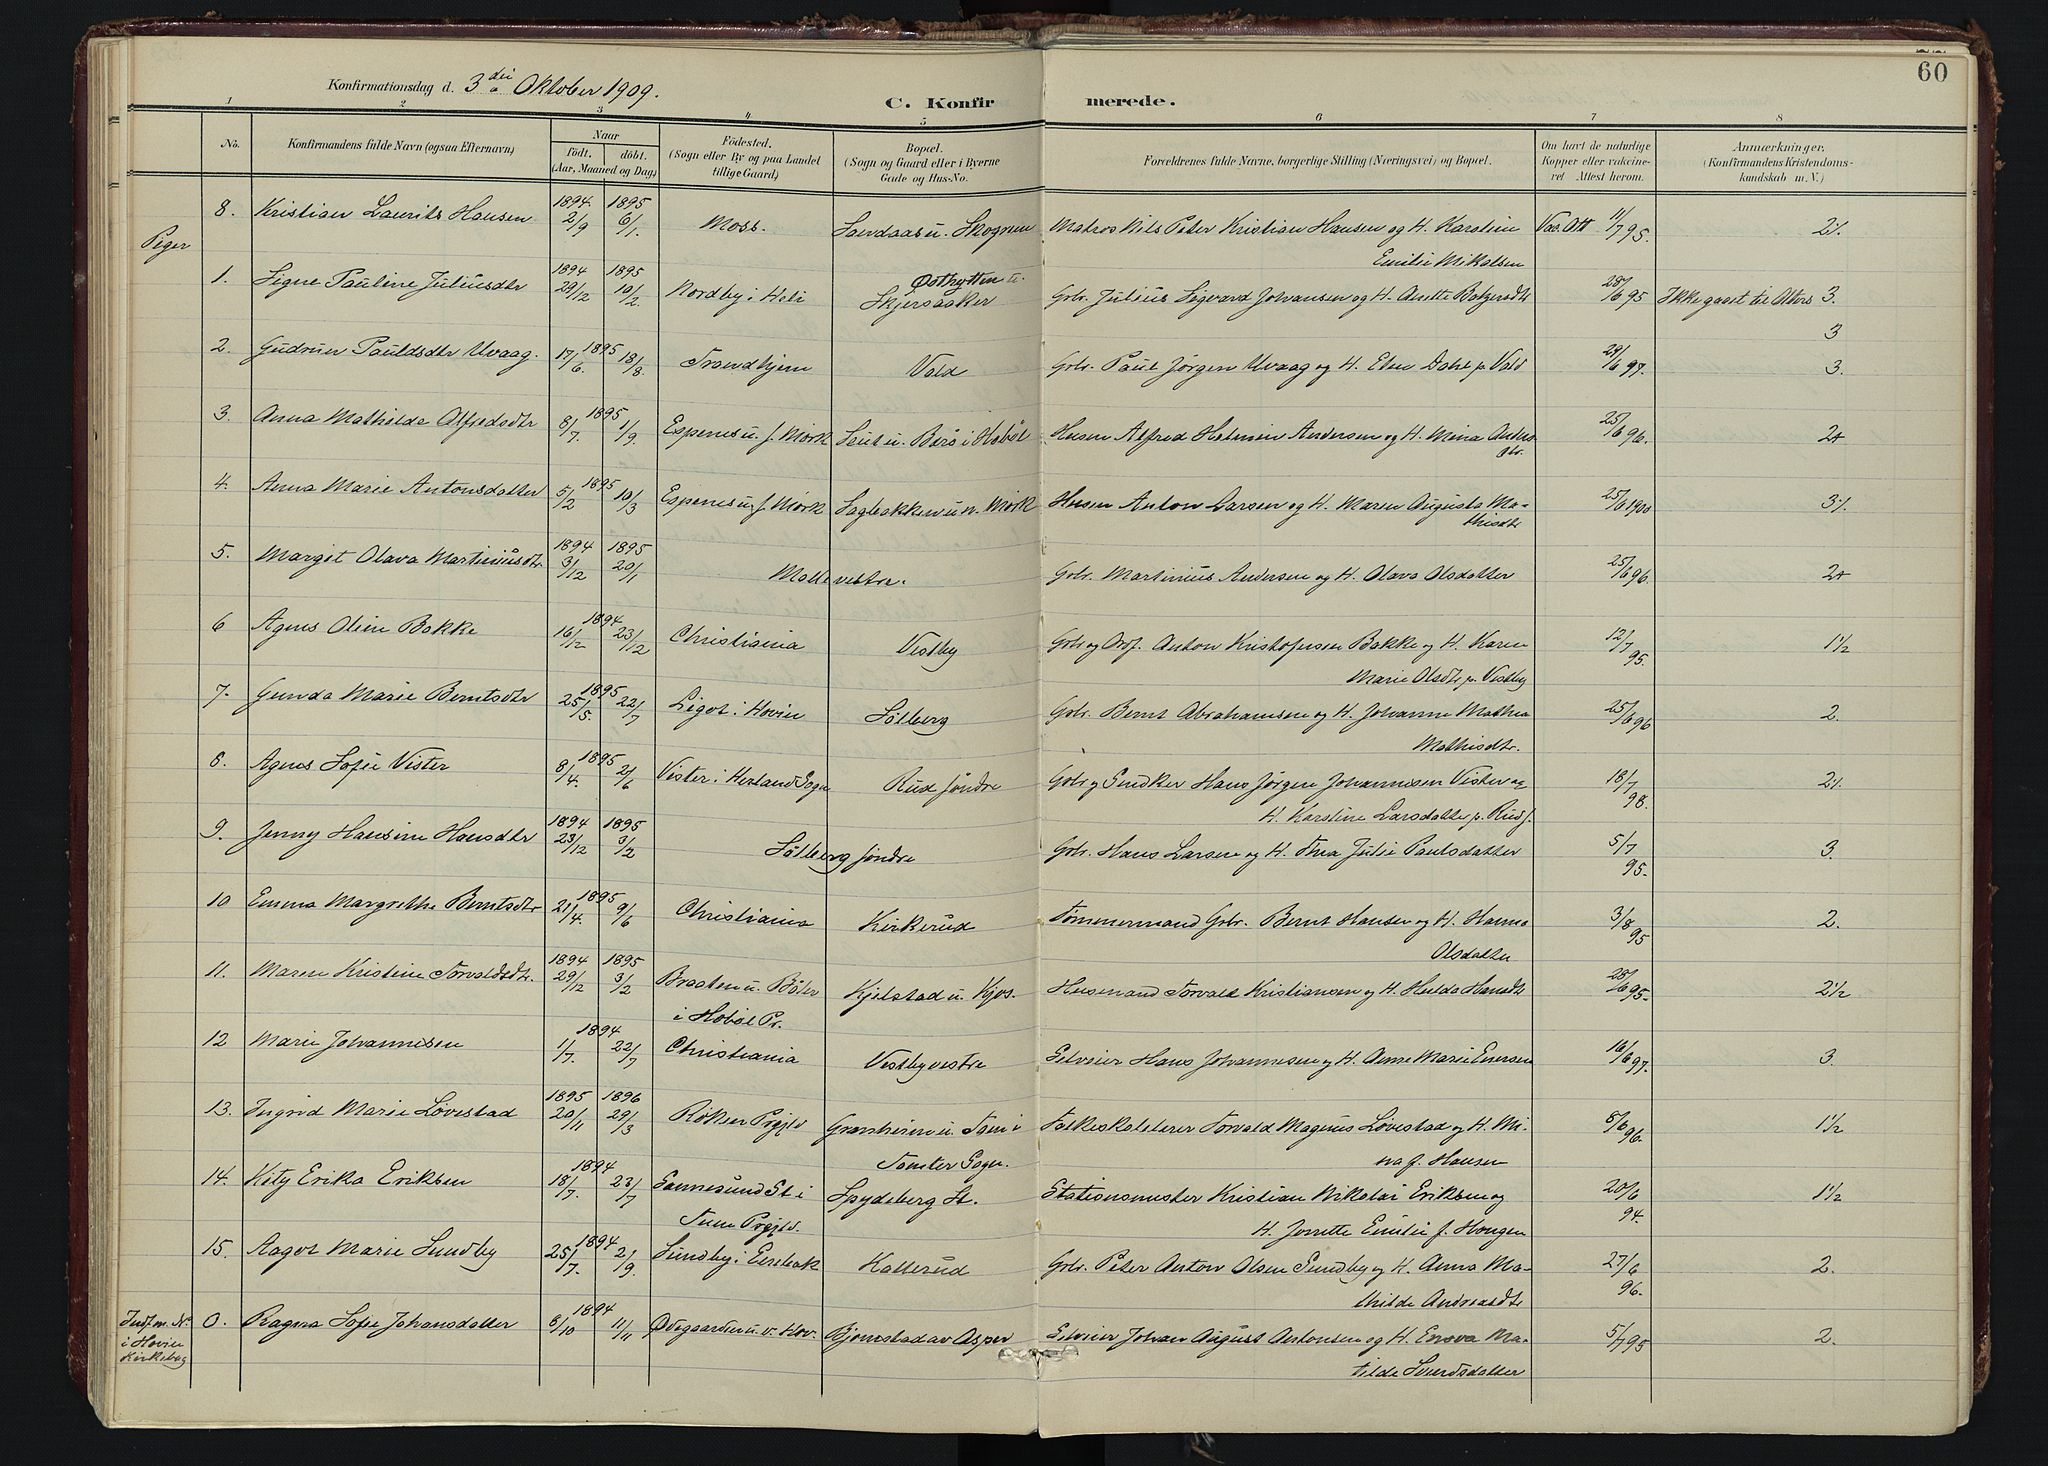 60
Konfirmationsdag d. 3die Oktober 1909.
C. Konfirmerede.
1 2 3 4 5 6 7 8
No. Konfirmandens fulde Navn (ogsaa Efternavn) Naar födt. döbt. (Aar, Maaned og Dag) Födested. (Sogn eller By og paa Landet tillige Gaard) Bopæl. (Sogn og Gaard eller i Byerne Gade og Hus-No. Forældrenes fulde Navne, borgerlige Stilling (Næringsvei) og Bopæl. Om havt de naturlige Kopper eller vakcineret Attest herom. Anmærkninger. (Konfirmandens Kristendomskundskab m. V.)
8. Kristian Laurits Hansen 1894 2/9 1895 6/1. Moss. Sandaas u. Skognen Matros Nils Peter Kristian Hansen og H. Karoline Vac. Att 11/7 95. 2⁒
Emilie Mikalsen
Piger
1. Signe Pauline Juliusdtr 1894 29/12 1895 10/2. Nordby i Heli Østhytten u. Skjersaaker Gbr. Julius Sigvard Johansen og H. Anette Bolgersdtr 28/6 95 Ikke gaaet til Alters 3.
3
2. Gudrun Paulsdtr Uvaag. 1895 17/6. 18/8. Trondhjem Vold Gbr. Paul Jørgen Uvaag og H. Elen Dahl p. Vold 29/6 97. 3.
3. Anna Mathilde Alfredsdtr 1895 8/7. 1/9. Espenes u. f. Mørk Leut u. Berg i Hobøl Husm Alfred Helmin Andersen og H. Mina Anders 25/6 96. 2+
dtr.
4. Anna Marie Antonsdatter 1895 5/2 10/3 Espenes u. f. Mørk Sagbakken u. n. Mørk Husm Anton Larsen og H. Maren Augusta Ma- 25/6 1900 3⁒
thisdtr
5. Margit Olava Martiniusdtr. 1894 3/12 1895 20/1 Moll vestre. Gbr. Martinius Andersen og H. Olava Olsdatter 25/6 96. 2+
6 Agnes Oline Bakke 1894 16/12 23/12 Christiania Vestby Gbr og Ordf. Anton Kristofersen Bakke og H. Karen 12/7 95. 1½
Marie Olsdtr p. Vestby
7. Gunda Marie Berntsdtr 1895 25/5. 22/7 Ligot i Hovin Solberg Gbr. Bernt Abrahamsen og H. Johanne Mathea 25/6 96 2.
Mathisdtr.
8. Agnes Sofie Vister 1895 8/4. 2/6 Vister i Herland Sogn Rud søndre Gbr og Snedker Hans Jørgen Johannesen Vister og 18/7 98. 2⁒
H. Karoline Larsdatter p. Rud s.
9. Jenny Hansine Hansdtr 1894 23/12 1895 3/2 Solberg søndre Gbr. Hans Larsen og H. Thea Julie Paulsdatter 5/7 95. 3.
10 Emma Margrethe Berntsdtr 1895 21/4. 9/6 Christiania Kirkerud Tømmermand Gbr. Bernt Hansen og H. Hanna 3/8 95 2.
Olsdatter
11. Maren Kristine Torvaldsdtr. 1894 29/12 1895 3/2 Braaten u. Bøler Kjelstad u. Kjos. Husmand Torvald Kristiansen og H. Hulda Hansdtr 28/6 95. 2½
i Hobøl Pr.
12 Marie Johannesen 1894 1/7. 22/7 Christiania Vestby vestre Selveier Hans Johannesen og H. Anne Marie Eversen 16/6 97. 3.
13. Ingrid Marie Løvestad 1895 20/11 1896 29/3 Røken Prgjld Granheim u. Tom i Folkeskolelærer Torvald Magnus Løvestad og H. Mi- 8/6 96. 1½
Tomter Sogn. na f. Hansen
14. Kity Erika Eriksen 1894 18/7. 23/7 Sannesund St i Spydeberg St. Stationsmester Kristian Nikolai Eriksen og 20/6 94. 1½
Tune Prgjld. H. Jonette Emilie f. Hougen
15. Aagot Marie Sundby 1894 25/7. 2/9. Sundby i Enebak Hallerud Gbr. Peter Anton Olsen Sundby og H. Anna Ma- 27/6 96. 2.
thilde Andreasdtr
Indf. m. No. i Hovin Kirkebog 0. Ragna Sofie Johansdatter 1894 8/10 11/11 Ødegaarden u. v. Hov. Bjørnstad av Asper Selveier Johan August Antonsen og H. Enova Ma- 5/7 95 2.
tilde Sverdsdatter